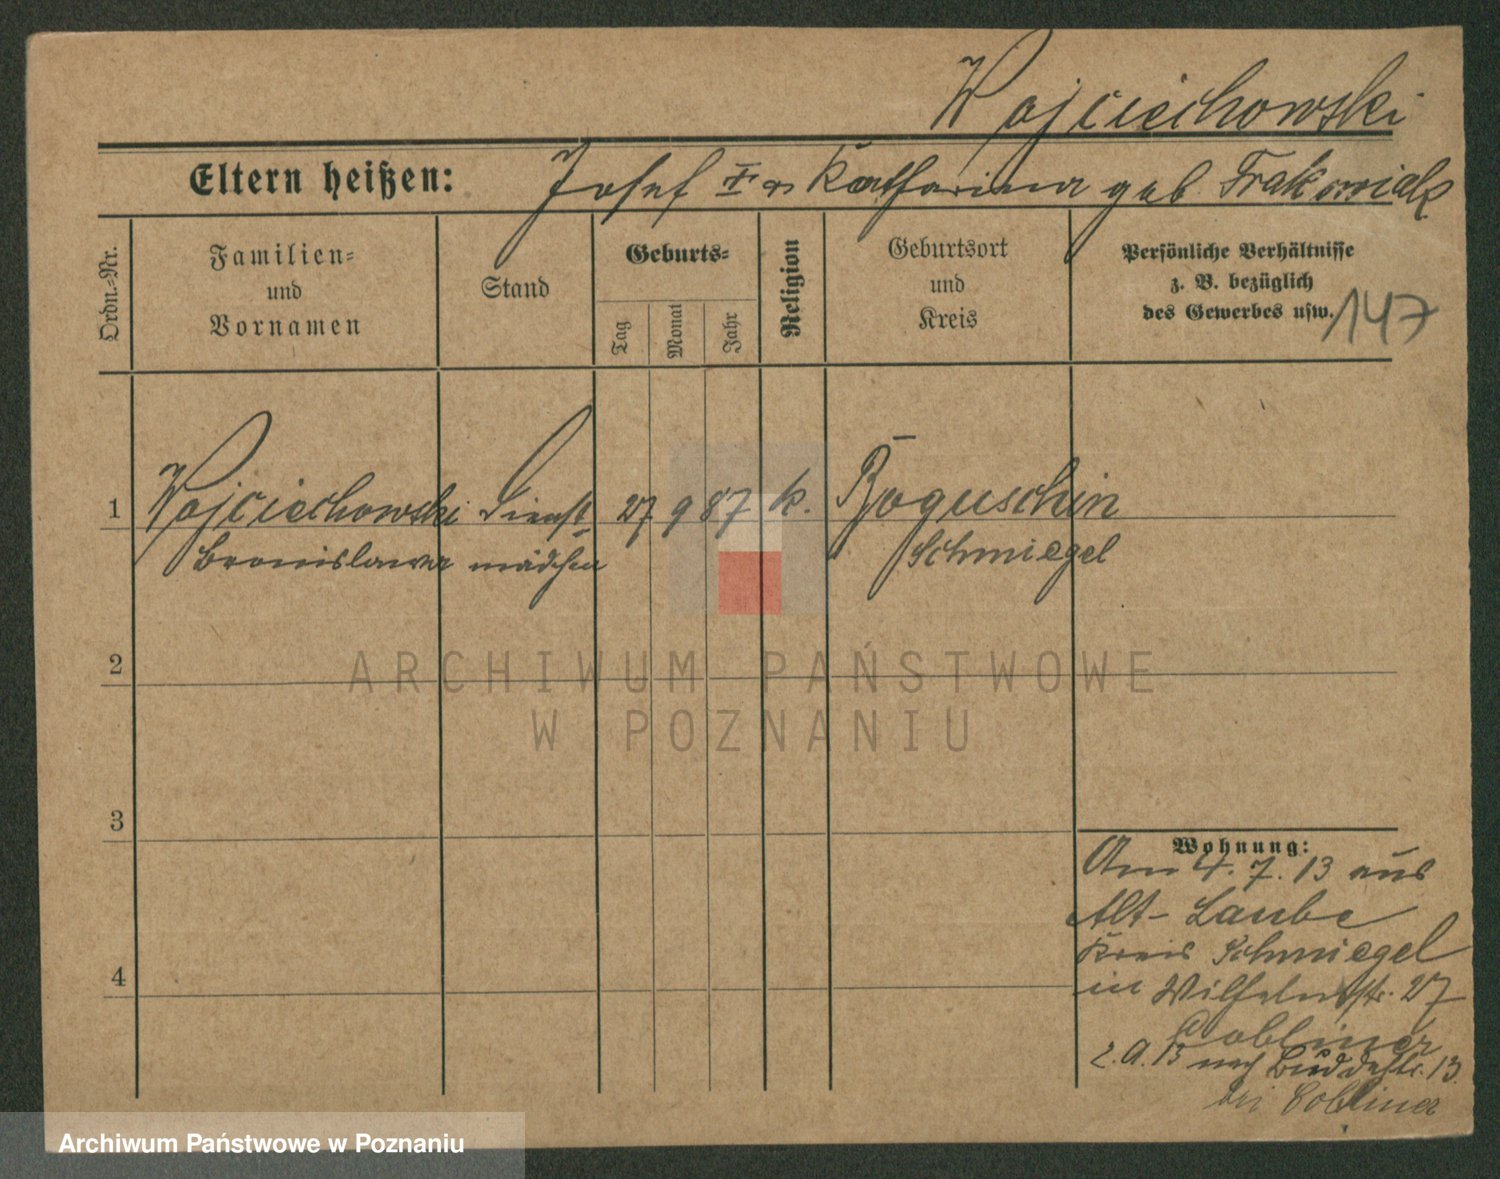 Wojciechowski
Eltern heißen: Josef Katharina geb Frakowiak
Ordn.-Nr.
Familien- und Vornamen
Stand
Geburts-
Tag
Monat
Jahr
Religion
Geburtsort und Kreis
Persönliche Verhältnisse
z. B. bezüglich
des Gewerbes usw.
147
1 Wojciechowski Dienst 27 9 87 k. Boguschin
Bronislawa mädchen Schmiegel
2
ARCHIWUM PAŃSTWOWE
W POZNANIU
3
Wohnung:
Am 4. 7. 13 aus
Alt-Laube
Kreis Schmiegel
4
in Wilhelmstr. 27
Cobliner
2. 9. 13 nach Buddestr. 13
bei Cobliner
Archiwum Państwowe w Poznaniu